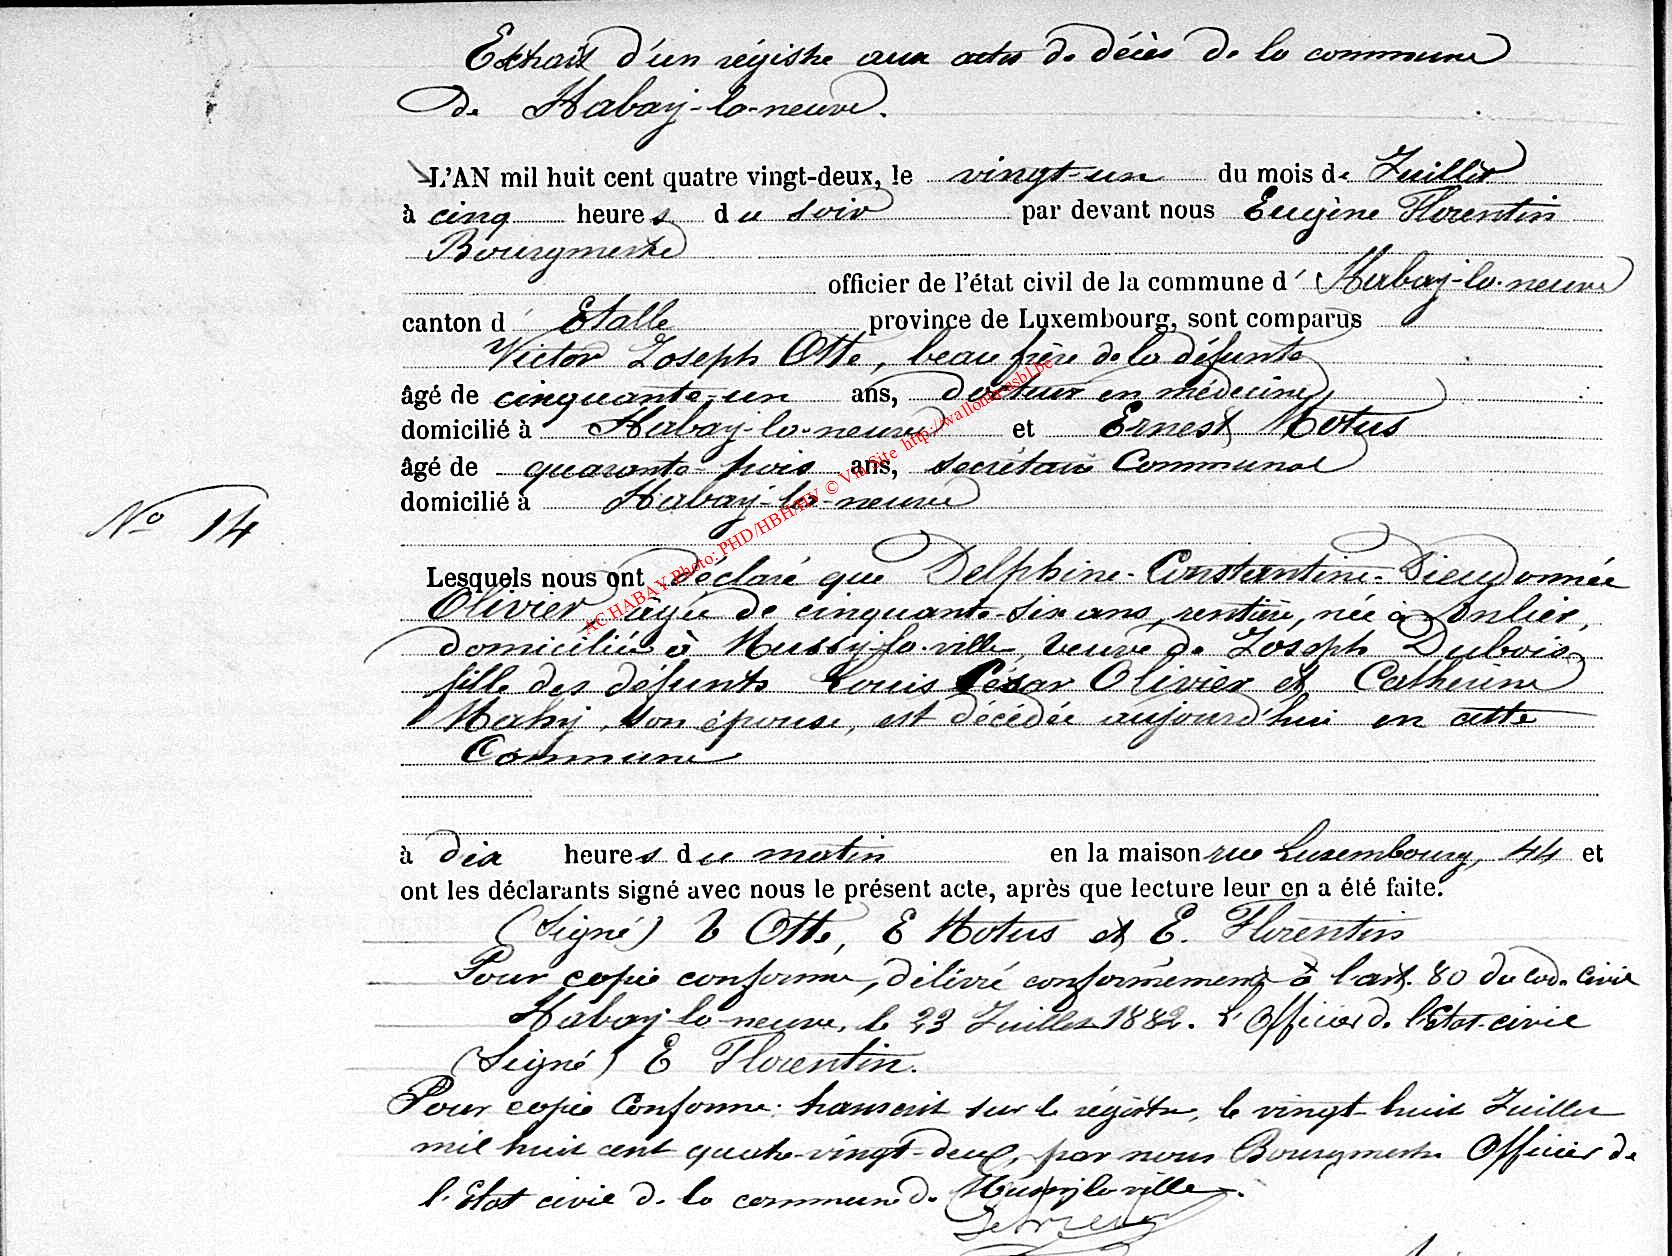 Extrait d'un régistre aux actes de décès de la commune
de Habay-la-neuve.
L'AN mil huit cent quatre vingt-deux, le vingt-un du mois de Juillet
à cinq heures du soir par devant nous Eugène Florentin
Bourgmestre
officier de l'état civil de la commune d' Habay-la-neuve
canton d' Etalle province de Luxembourg, sont comparus
Victor Joseph Otte, beau frère de la défunte
âgé de cinquante-un ans, docteur en médecine
domicilié à Habay-la-neuve et Ernest Motus
âgé de quarante-trois ans, secrétaire Communal
domicilié à Habay-la-neuve
No 14
Lesquels nous ont déclaré que Delphine-Constantine-Dieudonnée
Olivier âgée de cinquante-six ans, rentière, née à Anlier,
domiciliée à Mussy-la-ville, veuve de Joseph Dubois
fille des défunts Louis César Olivier et Catherine
Mahy, son épouse, est décédée aujourd'hui en cette
Commune
à dix heures du matin en la maison rue Luxembourg, 44 et
ont les déclarants signé avec nous le présent acte, après que lecture leur en a été faite.
(Signé) V Otte, E Motus et E. Florentin
Pour copie conforme, délivré conformément à l'art. 80 du cod. civil
Habay-la-neuve, le 23 Juillet 1882. L'Officier de l'Etat-civil
(Signé) E Florentin.
Pour copie conforme, transcrit sur le régistre, le vingt-huit Juillet
mil huit cent quatre-vingt-deux, par nous Bourgmestre Officier de
l'Etat civil de la commune de Mussy la ville.
AC HABAY Photo: PHD/HBH/HV © Via Site http://wallonia.asbl.be